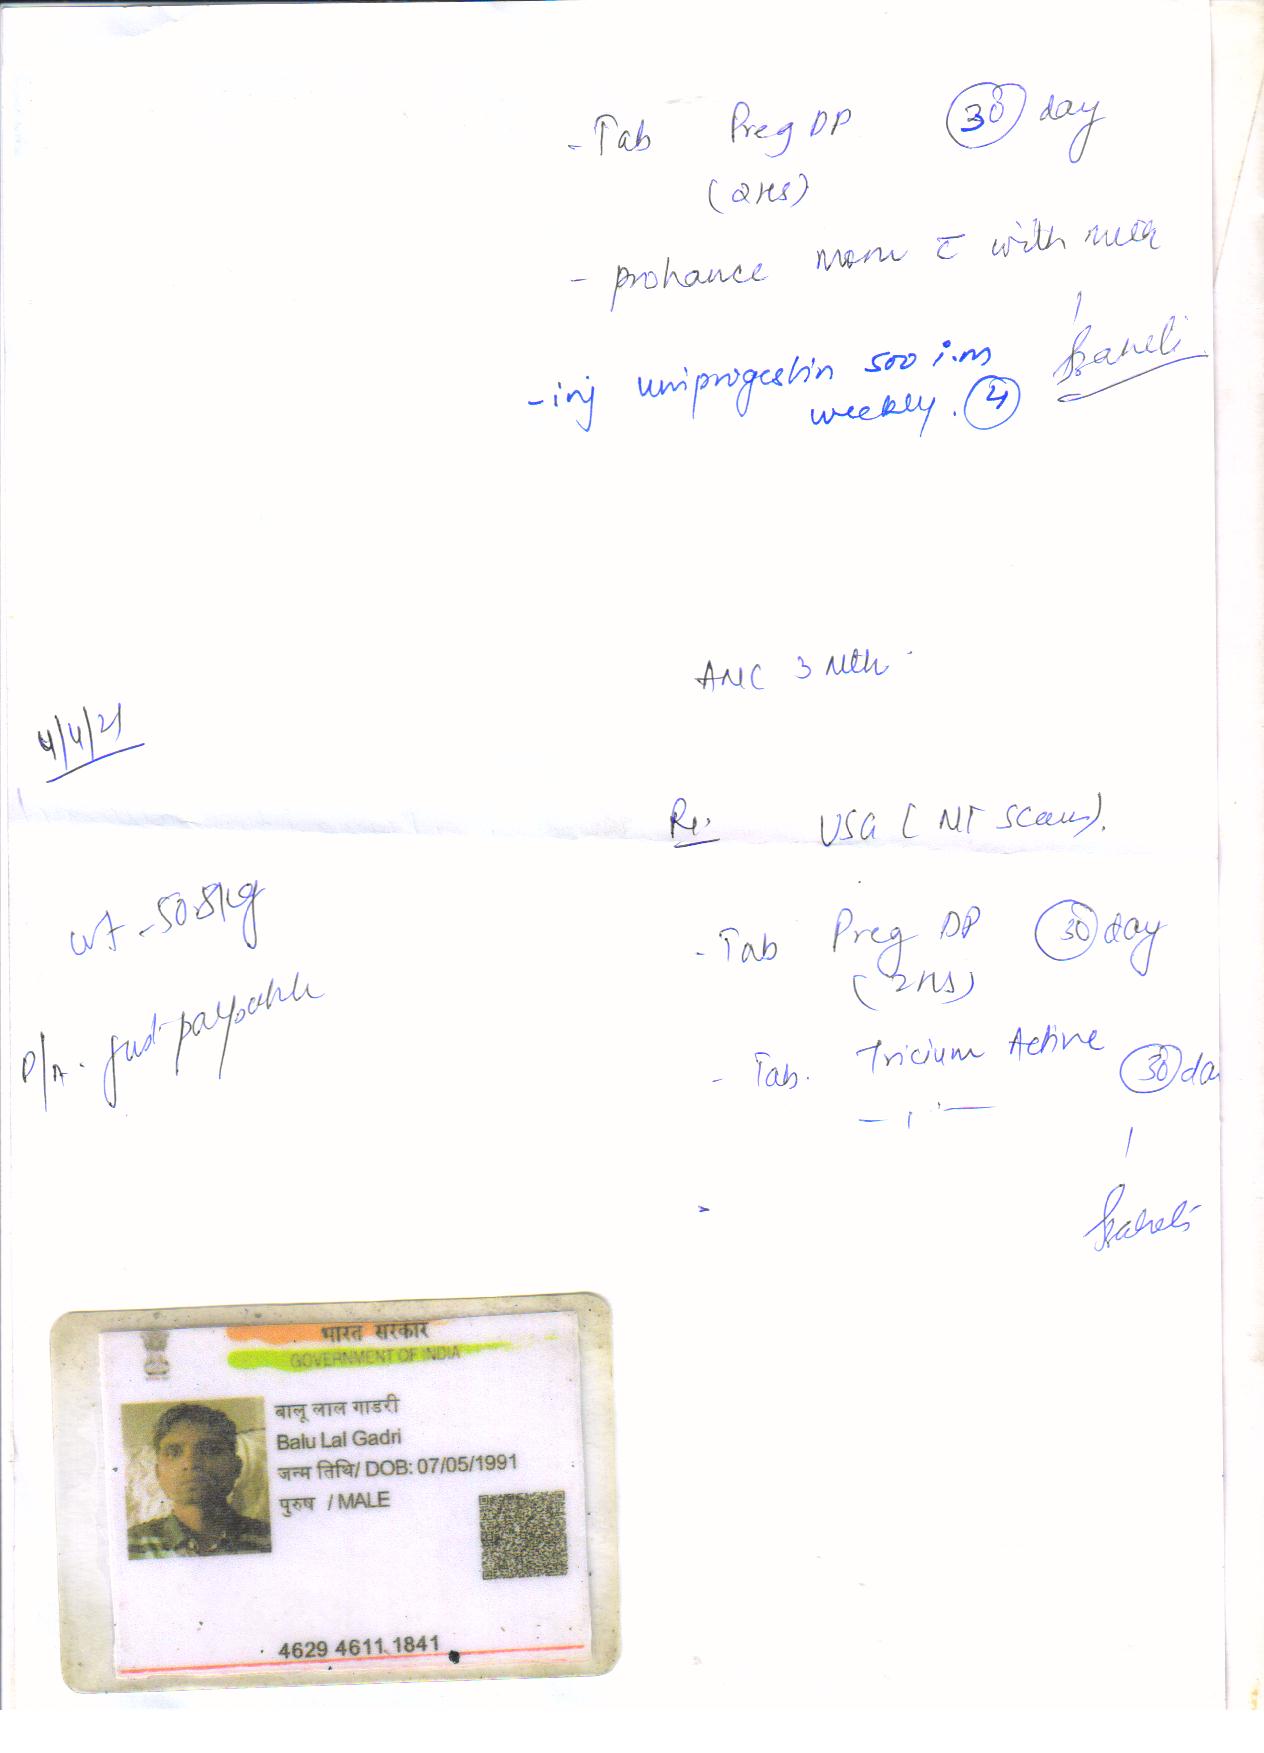 - Tab Preg DP 30 day
(2HS)
- prohance mom c̄ with milk
- inj uniprogestin 500 i.m
weekly. 4
ANC 3 Mth
4/4/21
Rx. USG ( NT Scan).
wt - 50.8kg
- Tab Preg DP 30 day
(2HS)
P/A. just palpable
- Tab. Tricium Active 30 da
भारत सरकार
GOVERNMENT OF INDIA
बालू लाल गाडरी
Balu Lal Gadri
जन्म तिथि/ DOB: 07/05/1991
पुरुष / MALE
4629 4611 1841